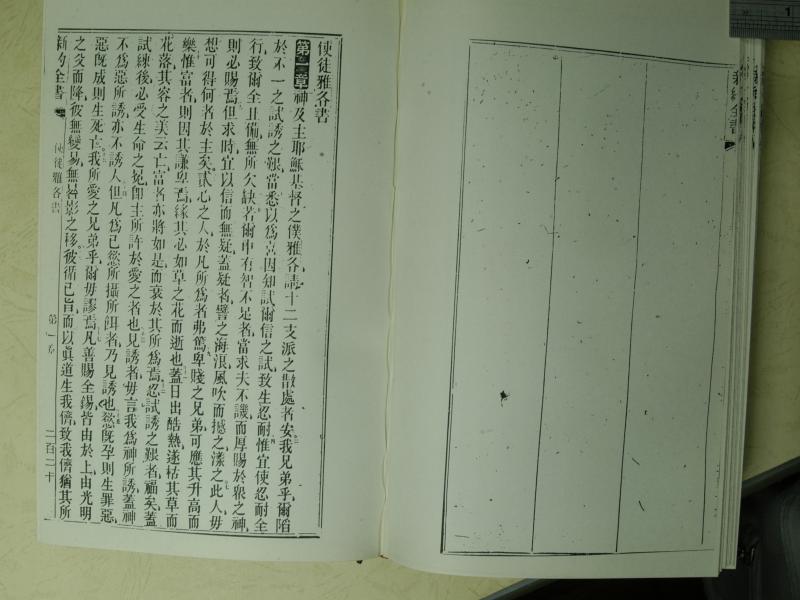 使徒雅各書
第一章神及主耶穌基督之僕雅各請十二支派之散處者安我兄弟乎爾陷
於不一之試誘之艱當悉以為喜因知試爾信之試致生忍耐惟宜使忍耐全
行致爾全且備無所欠缺若爾中有智不足者當求夫不譏而厚賜於眾之神
則必賜焉但求時宜以信而無疑蓋疑者譬之海浪風吹而撼之漾之此人毋
想可得何者於主矣貳心之人於凡所為者弗篤卑賤之兄弟可應其升高而
樂惟富者則因其謙卑焉緣其必如草之花而逝也蓋日出酷熱遂枯其草而
花落其容之美云亡富者亦將如是而衰於其所為焉忍試誘之艱者福矣蓋
試練後必受生命之冕卽主所許於愛之者也見誘者毋言我為神所誘蓋神
不為惡所誘亦不誘人但凡為己慾所攝所餌者乃見誘也慾旣孕則生罪惡
惡旣成則生死亡我所愛之兄弟乎爾毋謬焉凡善賜全錫皆由於上由光明
之父而降彼無變易無晷影之移彼循己旨而以眞道生我儕致我儕猶其所
新約全書
使徒雅各書
第一章
二百二十
新約全書